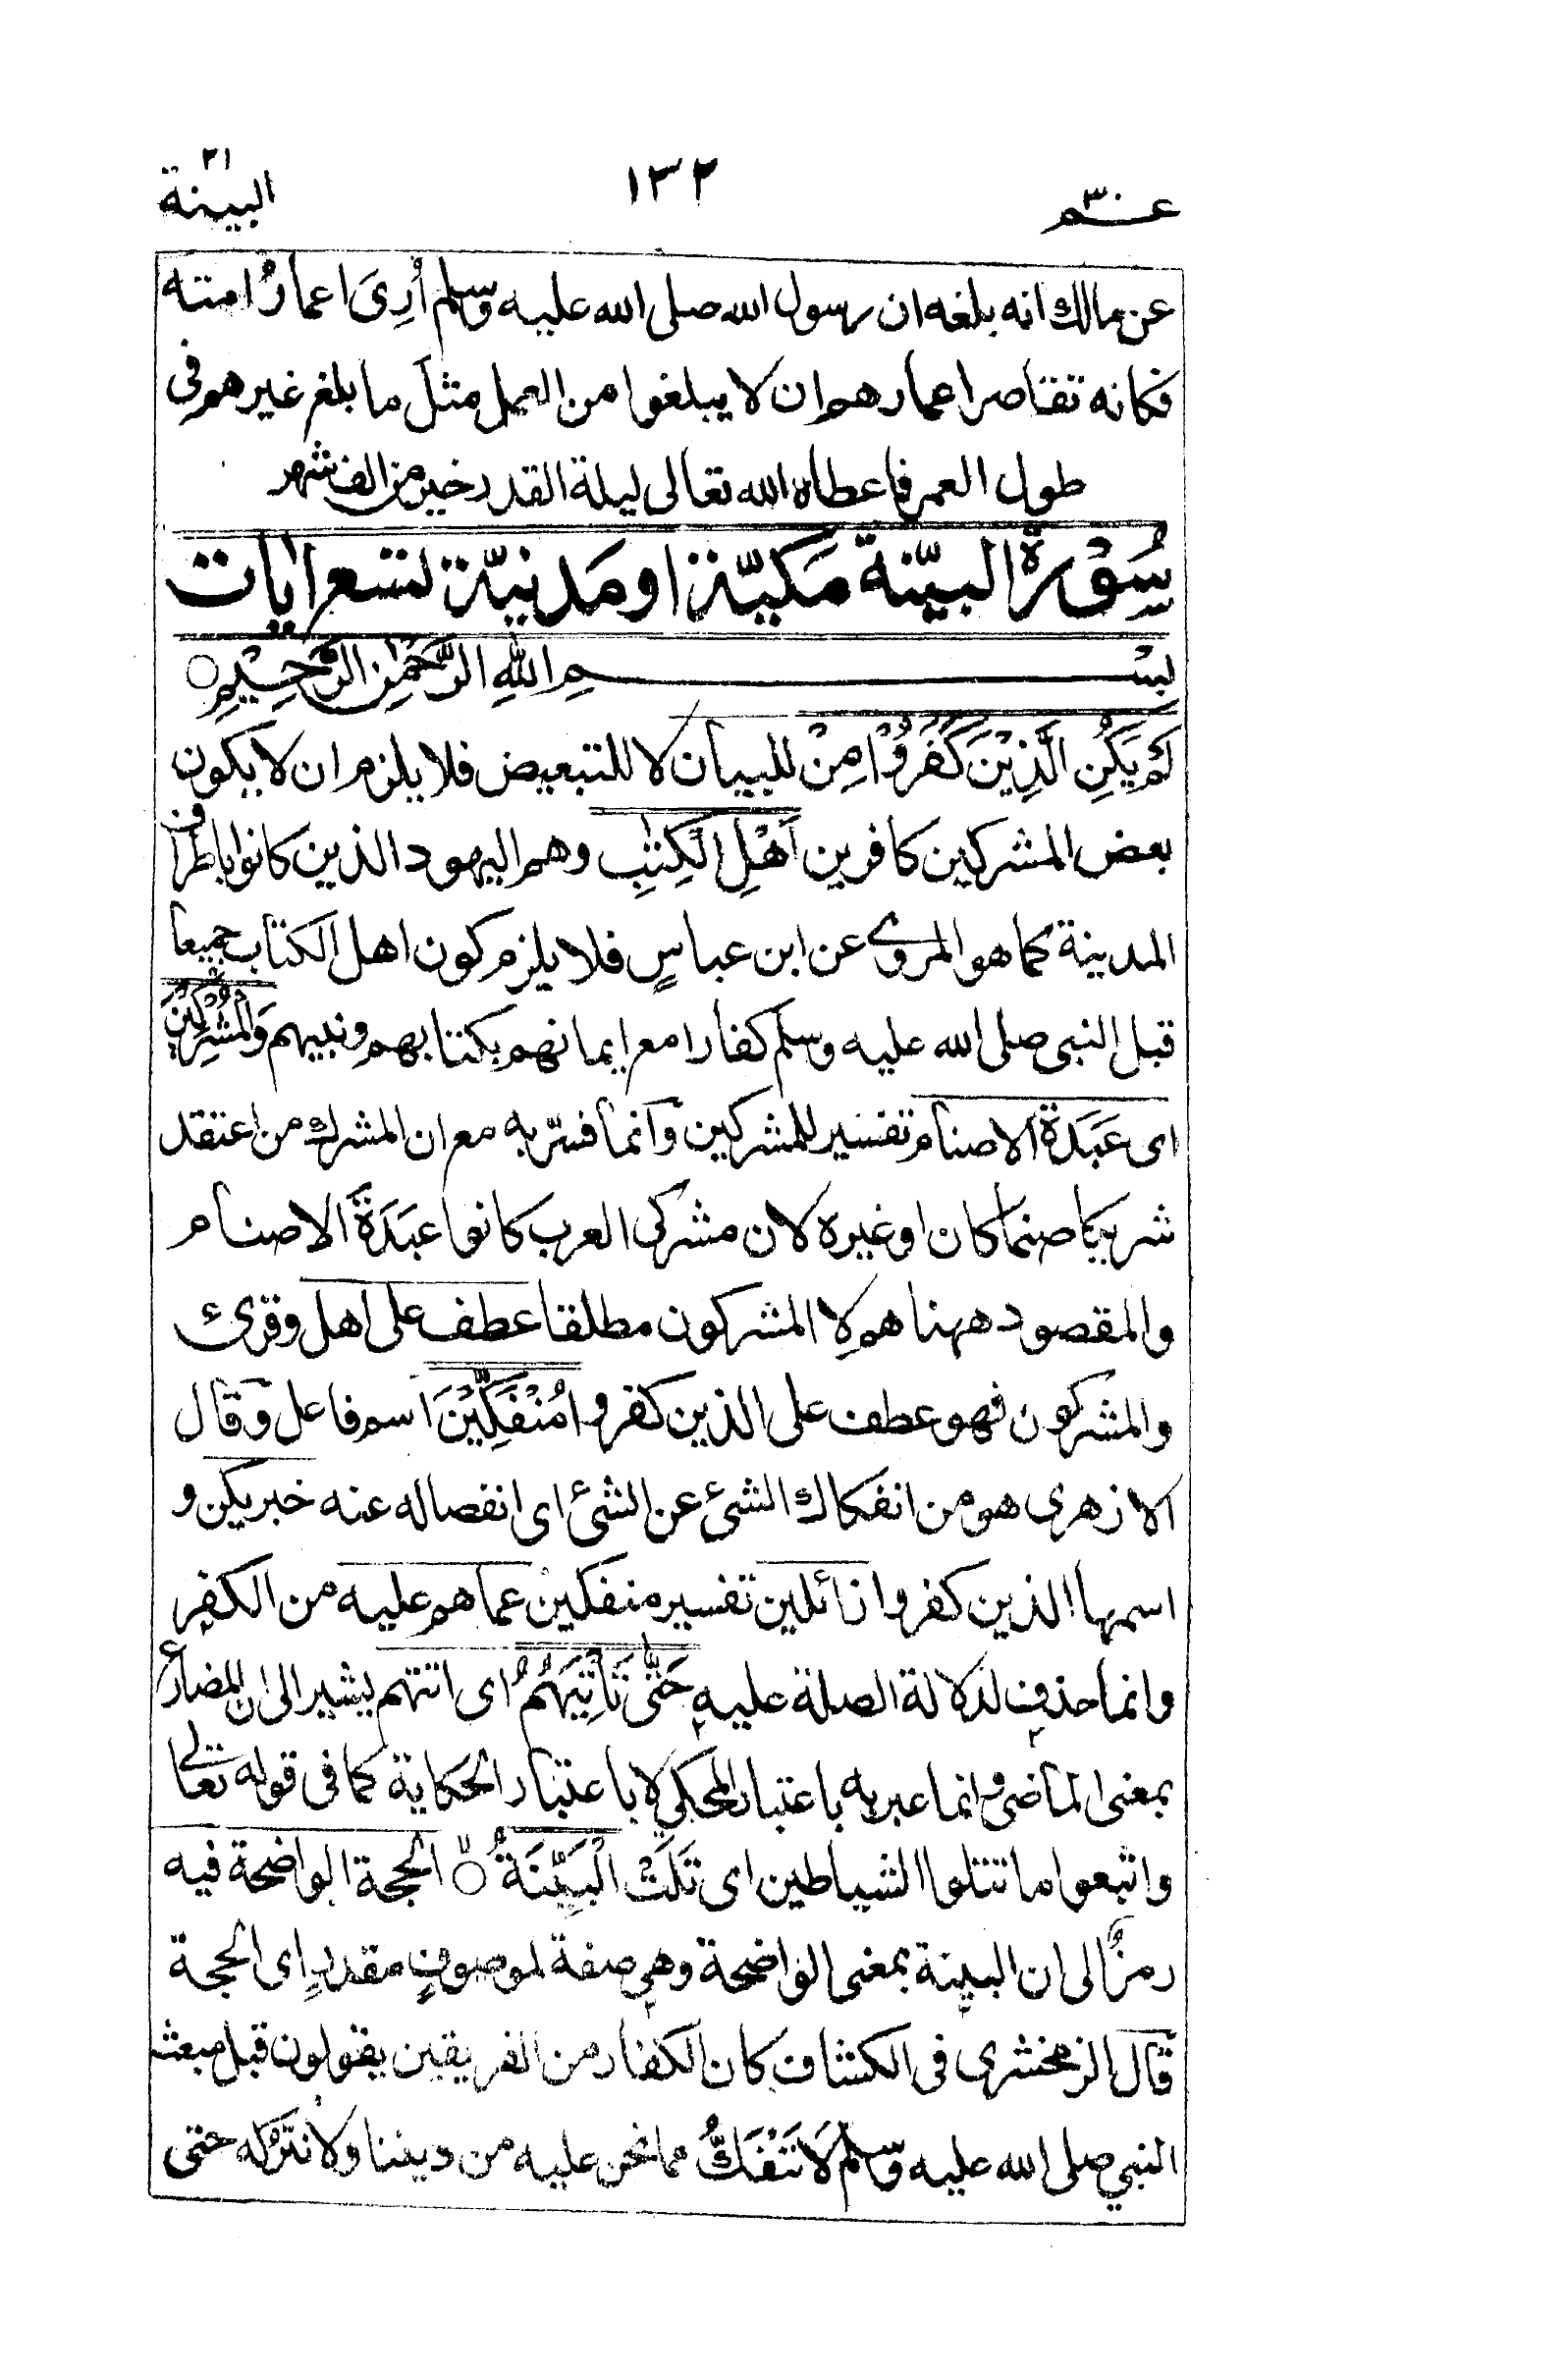 عـــم ٣٠
١٣٢
البينة ٢١
عن مالك انه بلغه ان رسول الله صلى الله عليه وسلم اُرِىَ اعمارُ امته
فكانه تقاصر اعمارهم ان لا يبلغوا من العمل مثلَ ما بلغ غيرهم فى
طول العمر فاعطاه الله تعالى ليلة القدر خير من الف شهر
سُوْرةُ البيّنة مَكيّة او مَدنيّة تسع اٰيات
بِسْـــــمِ اللهِ الرَّحْمٰنِ الرَّحِيْمِ ○
لَمْ يَكُنِ الَّذِيْنَ كَفَرُوْا مِنْ للبيان لا للتبعيض فلا يلزم ان لا يكون
بعض المشركين كافرين اَهْلِ الْكِتٰبِ وهم اليهود الذين كانوا باطراف
المدينة كما هو المروى عن ابن عباسٍ فلا يلزم كون اهل الكتاب جميعا
قبل النبى صلى الله عليه وسلم كفارا مع ايمانهم بكتابهم ونبيهم وَالْمُشْرِكِيْنَ
اى عَبَدَة الاصنام تفسير للمشركين وانما فسّر به مع ان المشرك من اعتقد
شريكا صنما كان او غيره لان مشركى العرب كانوا عبَدَةَ الاصنام
والمقصود ههنا هم لا المشركون مطلقا عطف على اهل وقرئ
والمشركون فهو عطف على الذين كفروا مُنْفَكِّيْنَ اسم فاعل وقال
الازهرى هو من انفكاك الشئ عن الشئ اى انفصاله عنه خبر يكن و
اسمها الذين كفروا زائلين تفسير منفكين عما هم عليه من الكفر
وانما حذف لدلالة الصلة عليه حَتّٰى تَاْتِيَهُمُ اى اتتهم يشير الى ان المضارع
بمعنى الماضى وانما عبر به باعتبار المحكى لا باعتبار الحكاية كما فى قوله تعالى
واتبعوا ما تتلوا الشياطين اى تَلَتْ الْبَيِّنَةُ ○ الحجة الواضحة فيه
رمزٌ الى ان البينة بمعنى الواضحة وهى صفة لموصوفٍ مقدرٍ اى الحجة
قال الزمخشرى فى الكشاف كان الكفار من الفريقين يقولون قبل مبعث
النبي صلى الله عليه وسلم لَا نَنْفَكُّ مما نحن عليه من ديننا ولا نتركه حتى